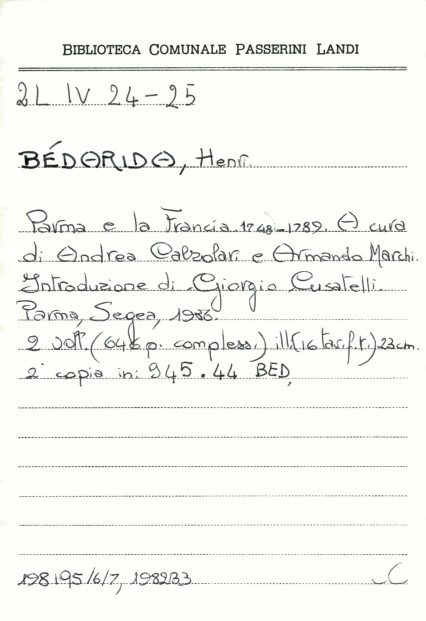 BIBLIOTECA COMUNALE PASSERINI LANDI
2L IV 24-25
BÉDARIDA, Henri.
Parma e la Francia 1748-1789. A cura
di Andrea Calzolari e Armando Marchi.
Introduzione di Giorgio Cusatelli.
Parma, Segea, 1986.
2 voll. (646 p. compless.) ill. (16 tav. f.t.) 23 cm.
2ª copia in: 945.44 BED,
198195/6/7, 198233